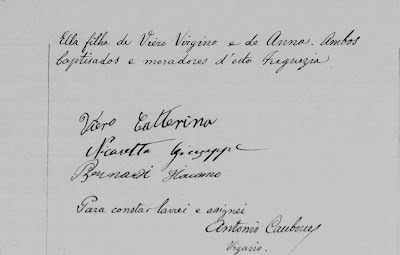 Ella filha de Viero Virgino e de Anna. Ambos
baptisados e moradores d'esta Freguezia
Viero Catterina
Nicaretta Giuseppe
Bernardi
Para constar lavrei e assignei
Antonio
Vigario.